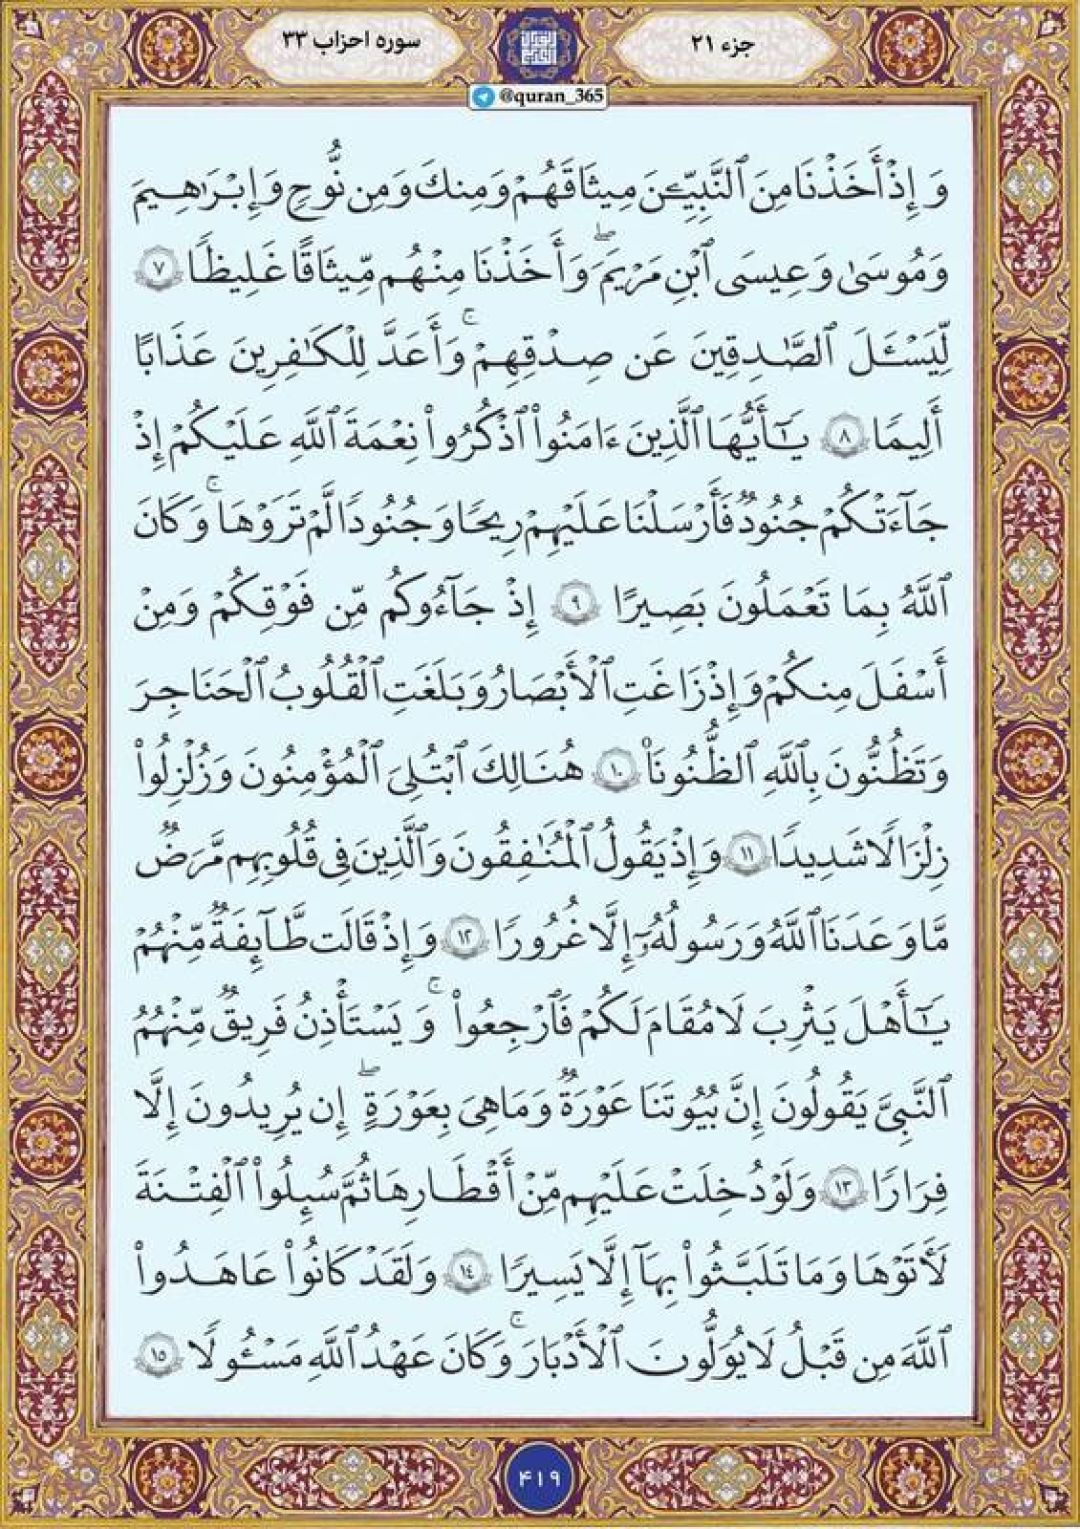 جزء ۲۱
سوره احزاب ۳۳
@quran_365
وَإِذْ أَخَذْنَا مِنَ ٱلنَّبِيِّـۧنَ مِيثَاقَهُمْ وَمِنكَ وَمِن نُّوحٍ وَإِبْرَٰهِيمَ
وَمُوسَىٰ وَعِيسَى ٱبْنِ مَرْيَمَۖ وَأَخَذْنَا مِنْهُم مِّيثَاقًا غَلِيظًا ٧
لِّيَسْـَٔلَ ٱلصَّـٰدِقِينَ عَن صِدْقِهِمْۚ وَأَعَدَّ لِلْكَـٰفِرِينَ عَذَابًا
أَلِيمًا ٨ يَـٰٓأَيُّهَا ٱلَّذِينَ ءَامَنُوا۟ ٱذْكُرُوا۟ نِعْمَةَ ٱللَّهِ عَلَيْكُمْ إِذْ
جَآءَتْكُمْ جُنُودٌ فَأَرْسَلْنَا عَلَيْهِمْ رِيحًا وَجُنُودًا لَّمْ تَرَوْهَاۚ وَكَانَ
ٱللَّهُ بِمَا تَعْمَلُونَ بَصِيرًا ٩ إِذْ جَآءُوكُم مِّن فَوْقِكُمْ وَمِنْ
أَسْفَلَ مِنكُمْ وَإِذْ زَاغَتِ ٱلْأَبْصَارُ وَبَلَغَتِ ٱلْقُلُوبُ ٱلْحَنَاجِرَ
وَتَظُنُّونَ بِٱللَّهِ ٱلظُّنُونَا۠ ١٠ هُنَالِكَ ٱبْتُلِىَ ٱلْمُؤْمِنُونَ وَزُلْزِلُوا۟
زِلْزَالًا شَدِيدًا ١١ وَإِذْ يَقُولُ ٱلْمُنَـٰفِقُونَ وَٱلَّذِينَ فِى قُلُوبِهِم مَّرَضٌ
مَّا وَعَدَنَا ٱللَّهُ وَرَسُولُهُۥٓ إِلَّا غُرُورًا ١٢ وَإِذْ قَالَت طَّآئِفَةٌ مِّنْهُمْ
يَـٰٓأَهْلَ يَثْرِبَ لَا مُقَامَ لَكُمْ فَٱرْجِعُوا۟ۚ وَيَسْتَـْٔذِنُ فَرِيقٌ مِّنْهُمُ
ٱلنَّبِىَّ يَقُولُونَ إِنَّ بُيُوتَنَا عَوْرَةٌ وَمَا هِىَ بِعَوْرَةٍۖ إِن يُرِيدُونَ إِلَّا
فِرَارًا ١٣ وَلَوْ دُخِلَتْ عَلَيْهِم مِّنْ أَقْطَارِهَا ثُمَّ سُئِلُوا۟ ٱلْفِتْنَةَ
لَـَٔاتَوْهَا وَمَا تَلَبَّثُوا۟ بِهَآ إِلَّا يَسِيرًا ١٤ وَلَقَدْ كَانُوا۟ عَاهَدُوا۟
ٱللَّهَ مِن قَبْلُ لَا يُوَلُّونَ ٱلْأَدْبَارَۚ وَكَانَ عَهْدُ ٱللَّهِ مَسْـُٔولًا ١٥
۴۱۹